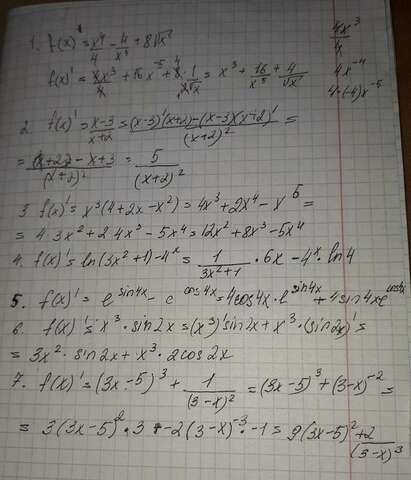 1. f(x) = x⁴/4 - 4/x⁴ + 8√x
4x³/4
f(x)' = 4x³/4 + 16x⁻⁵ + 8·1/2√x = x³ + 16/x⁵ + 4/√x
4x⁻⁴
4·(-4)x⁻⁵
2. f(x)' = x-3/x+2 = (x-3)'(x+2)-(x-3)(x+2)'/(x+2)² =
= x+2-x+3/(x+2)² = 5/(x+2)²
3. f(x)' = x³(4+2x-x²) = 4x³+2x⁴-x⁵ =
= 4·3x²+2·4x³-5x⁴ = 12x²+8x³-5x⁴
4. f(x)' = ln(3x²+1)-4ˣ = 1/3x²+1 · 6x - 4ˣ · ln4
5. f(x)' = e^sin4x - e^cos4x = 4cos4x·e^sin4x + 4sin4x e^cos4x
6. f(x)' = x³·sin2x = (x³)'sin2x + x³·(sin2x)' =
= 3x²·sin2x + x³·2cos2x
7. f(x)' = (3x-5)³ + 1/(3-x)² = (3x-5)³ + (3-x)⁻² =
= 3(3x-5)²·3 + -2(3-x)⁻³·-1 = 9(3x-5)² + 2/(3-x)³